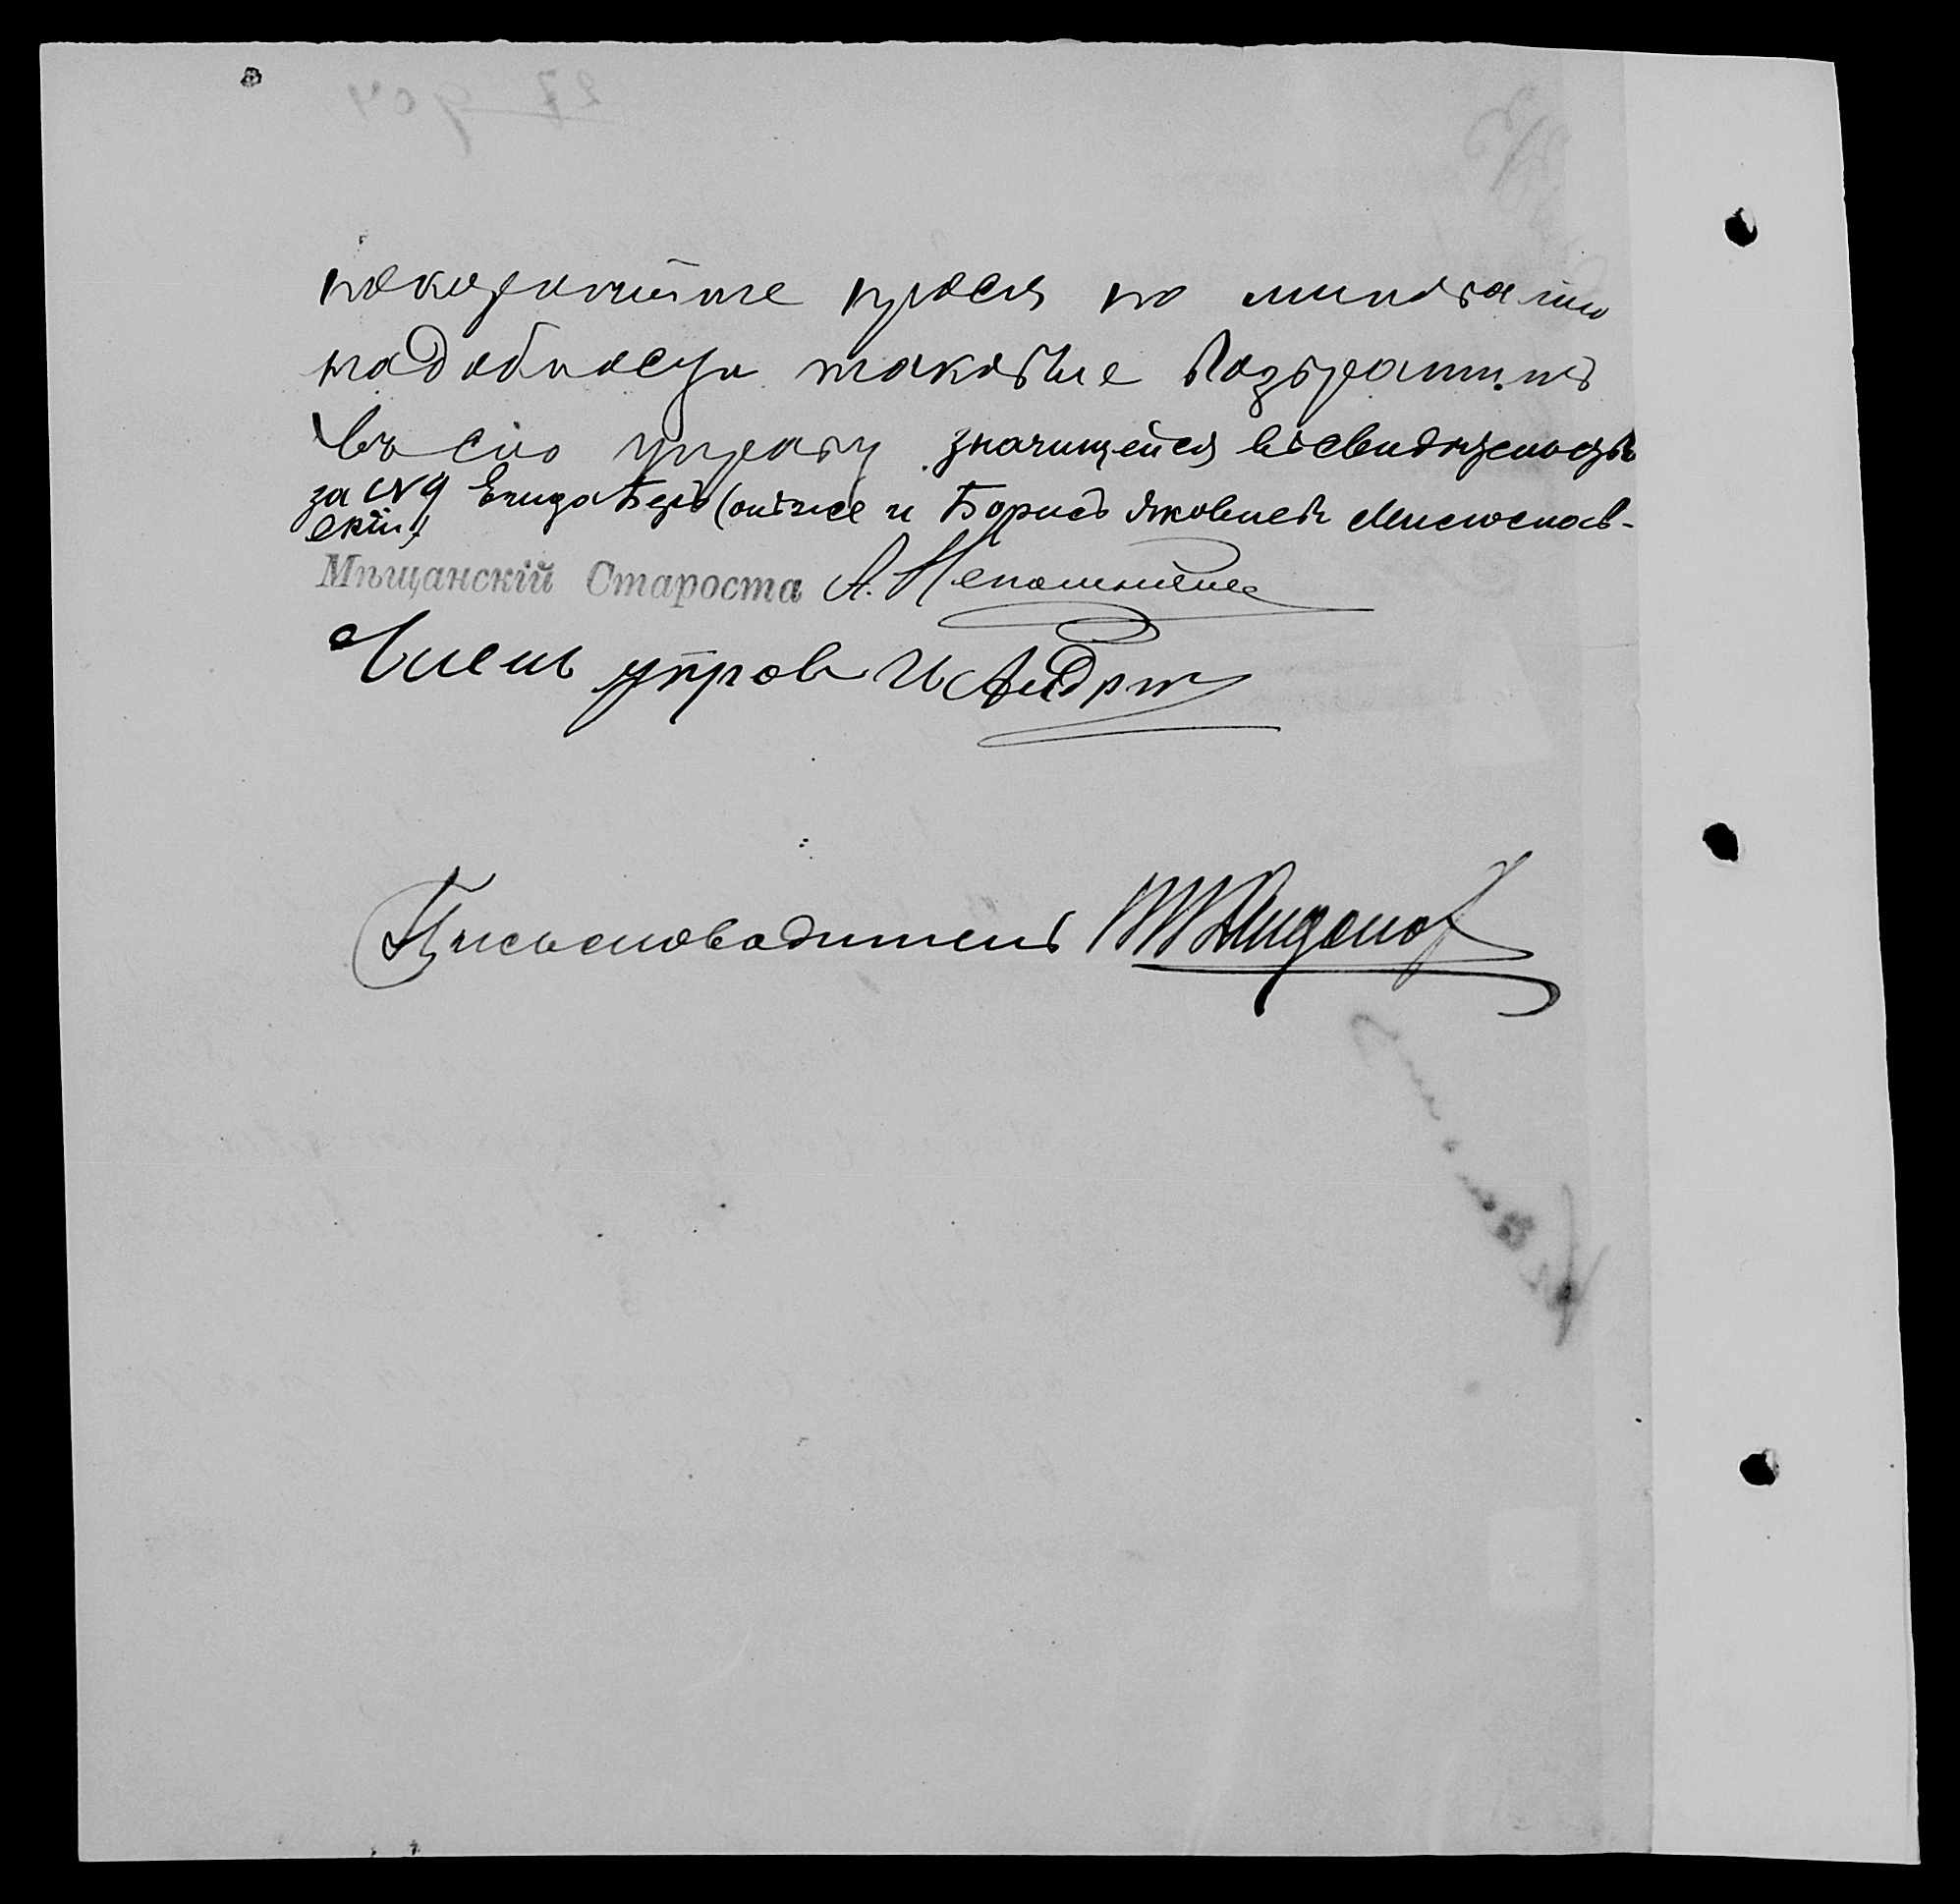 покорнѣйше прося по минованiи
надобности таковые возвратить
въ сiю управу значищейся въ свидѣтельствѣ
за № 9 Елизаветъ (онъже и Борисъ Яковлевъ Миюслав-
скiй)
Мѣщанскiй Староста А. Непомнящiй
Членъ управ И Андри
Письмоводитель